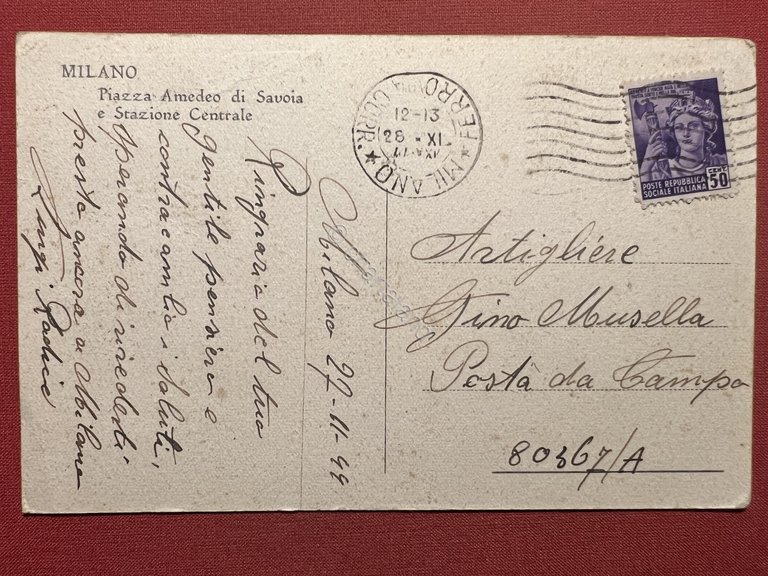 MILANO
Piazza Amedeo di Savoia
e Stazione Centrale
MILANO FERROVIA CORR.
12-13
28 - XI
POSTE REPUBBLICA
SOCIALE ITALIANA
CENT. 50
Artigliere
Gino Musella
Posta da Campo
80367/A
Milano 27-11-44
Ringrazio del tuo
gentile pensiero e
contracambio i saluti,
sperando di rivederti
presto ancora a Milano
Luigi Radice